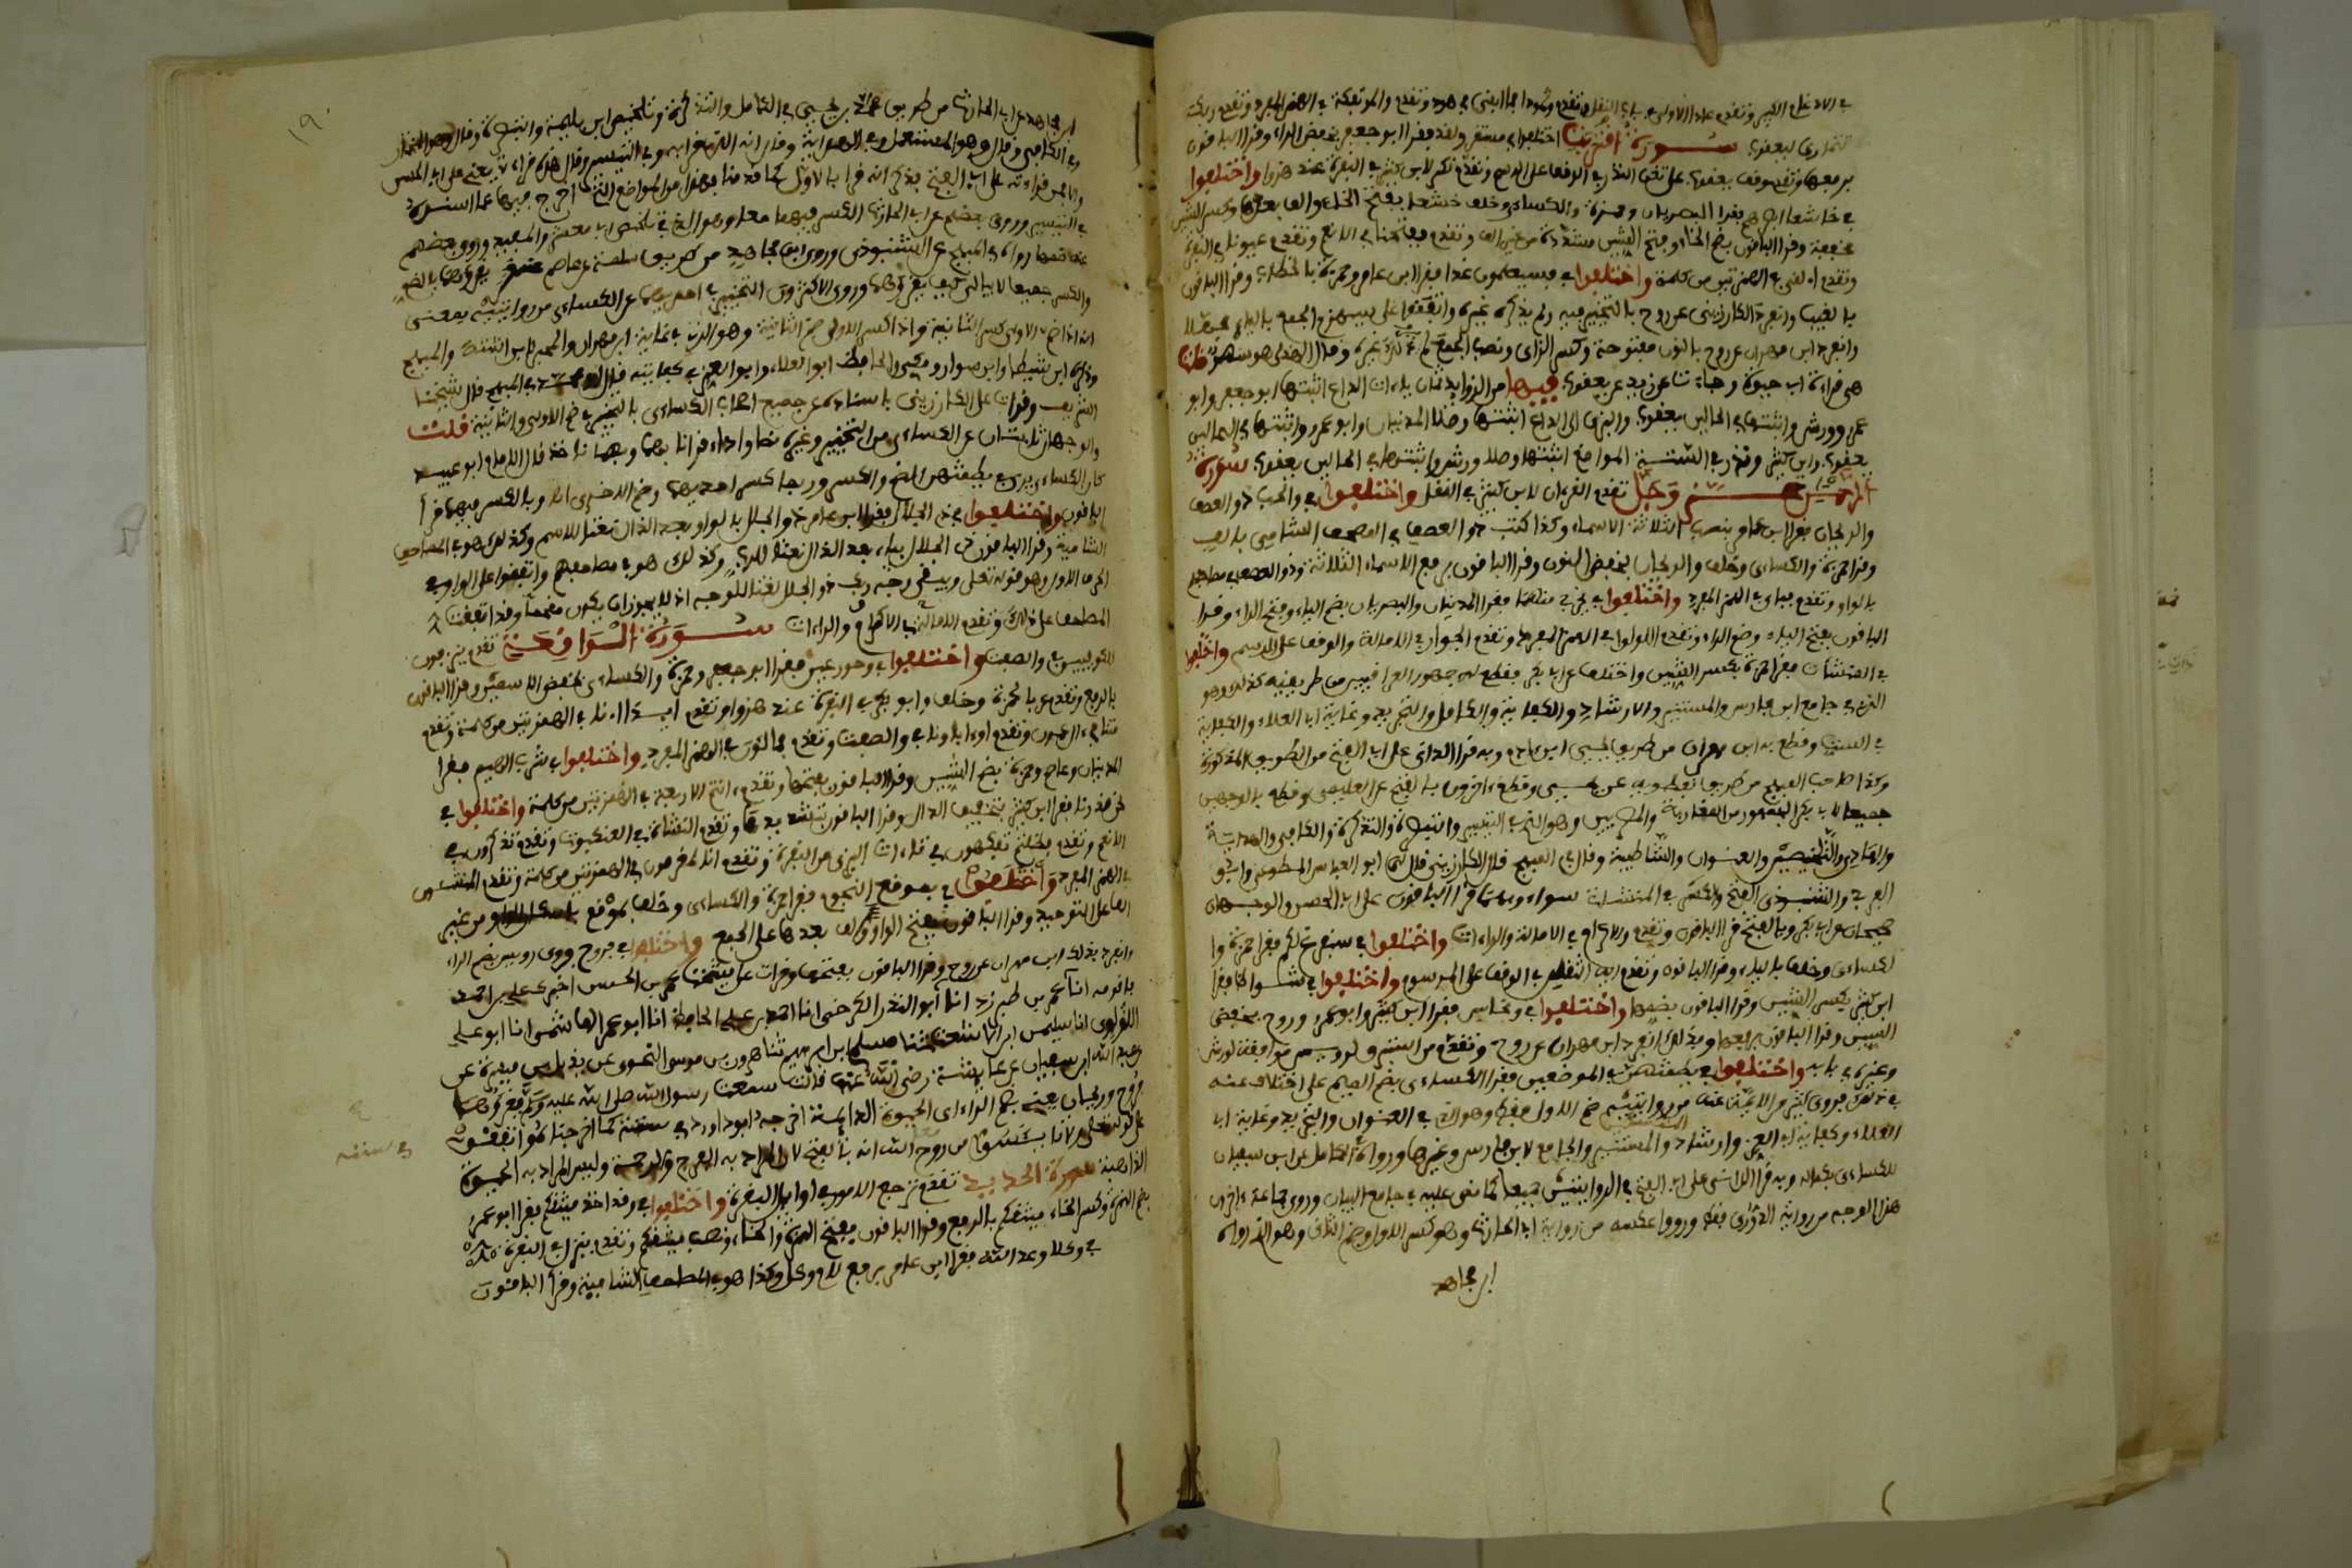 في الادغام الكبير وتقدم عادا الاولى في باب النقل وتقدم وثمودا فما ابقى في هود وتقدم والموتفكة في الهمز المفرد وتقدم ربك
تتمارى ليعقوب سورة اقتربت اختلفوا في مستقر ولقد فقرا ابو جعفر بخفض الراء وقرا الباقون
برفعها وتقدم وقف يعقوب على تغن النذر في الوقف على الرسم وتقدم نكر لابن كثير في البقرة عند هزوا واختلفوا
في خاشعا ابصارهم فقرا البصريان وحمزة والكساءي وخلف خشعا بفتح الخاء والف بعدها وكسر الشين
مخففة وقرا الباقون بضم الخاء وفتح الشين مشددة من غير الف وتقدم ففتحنا في الانعام وتقدم عيونا في البقرة
وتقدم الفى في الهمزتين من كلمة واختلفوا في سيعلمون غدا فقرا ابن عامر وحمزة بالخطاب وقرا الباقون
بالغيب وانفرد الكارزيني عن روح بالتخيير فيه ولم يذكره غيره واتفقوا على سيهزم الجمع بالياء مجهلا
وانفرد ابن مهران عن روح بالنون مفتوحة وكسر الزاي ونصب الجمع لم يذكره غيره وقال الهذلي هو سهو قلت
هي قراءة ابي حيوة وجاءت عن زيد عن يعقوب فيها من الزوايد ثمان ياءات الداع اثبتها ابو جعفر وابو
عمرو وورش واثبتها في الحالين يعقوب والبزي الى الداع اثبتها وصلا المدنيان وابو عمرو واثبتها في الحالين
يعقوب وابن كثير ونذر في الستة المواضع اثبتها وصلا ورش واثبتها في الحالين يعقوب سورة
الرحمن عز وجل تقدم القرءان لابن كثير في النقل واختلفوا في والحب ذو العصف
والريحان فقرا ابن عامر بنصب الثلاثة الاسماء وكذا كتب ذو العصف في المصحف الشامي بالف
وقرا حمزة والكساءي وخلف والريحان بخفض النون وقرا الباقون برفع الاسماء الثلاثة وذو العصف في مصاحفهم
بالواو وتقدم فباي في الهمز المفرد واختلفوا في يخرج منهما فقرا المدنيان والبصريان بضم الياء وفتح الراء وقرا
الباقون بفتح الياء وضم الراء وتقدم اللولو في الهمز المفرد وتقدم الجوار في الامالة والوقف على الرسم واختلفوا
في المنشات فقرا حمزة بكسر الشين واختلف عن ابي بكر فقطع له جمهور العراقيين من طريقيه كذلك وهو
الذي في جامع ابن فارس والمستنير والارشاد والكفاية والكامل والتجريد وغاية ابي العلاء والكفاية
في الست وقطع به ابن مهران من طريق يحيى ابن ءادم وبه قرا الداني على ابي الفتح من الطريق المذكورة
وكذا صاحب المبهج من طريق نفطويه عن يحيى وقطع ءاخرون بالفتح عن العليمي وقطع بالوجهين
جميعا لابي بكر الجمهور من المغاربة والمصريين وهو الذي في التيسير والتبصرة والتذكرة والكافي والهداية
والهادي والتلخيص والعنوان والشاطبية وقال في المبهج قال الكارزيني قال لي ابو العباس المطوعي وابو
الفرج الشنبوذي الفتح والكسر في المنشات سواء وبهما قرا الباقون على ابي الحصر والوجهان
صحيحان عن ابي بكر وبالفتح قرا الباقون وتقدم والاكرام في الامالة والراءات واختلفوا في سنفرغ لكم فقرا حمزة وا
لكساءي وخلف بالياء وقرا الباقون وتقدم ايه الثقلان في الوقف على المرسوم واختلفوا في شواظ فقرا
ابن كثير بكسر الشين وقرا الباقون بضمها واختلفوا في ونحاس فقرا ابن كثير وابو عمرو وروح بخفض
السين وقرا الباقون برفعها وبذلك انفرد ابن مهران عن روح وتقدم من استبرق لرويس موافقة لورش
وغيره في بابه واختلفوا في يطمثهن في الموضعين فقرا الكساءي بضم الميم على اختلاف عنه
في ذلك فروى كثير من الايمة عنه من روايتيه ضم الاول فقط وهو الذي في العنوان والتجريد وغاية ابي
العلاء وكفاية ابي العز وارشاده والمستنير والجامع لابن فارس وغيرها ورواه في الكامل عن ابن سفيان
للكساءي بكماله وبه قرا الداني على ابي الفتح في الروايتين جميعا كما نص عليه في جامع البيان وروى جماعة ءاخرون
هذا الوجه من رواية الدوري فقط ورووا عكسه من رواية ابي الحارث وهو كسر الاول وضم الثاني وهو الذي رواه
ابن مجاهد
١٩٠
ابن مجاهد عن ابي الحارث من طريق محمد بن يحيى في الكامل والتذكرة وتلخيص ابن بليمة والتبصرة وقال هو المختار
وفي الكافي وقال وهو المستعمل وفي الهداية وقال انه الذي قرا به وفي التيسير وقال هذه قراءتي يعني على ابي الحسن
والا فمن قراءته على ابي الفتح فذكر انه قرا بالاول كما قدمنا فهذا من المواضع التي خرج فيها عما اسنده
في التيسير وروى بعضهم عن ابي الحارث الكسر فيهما معا وهو الذي في تلخيص ابي معشر والمفيد وروى بعضهم
عنه ضمهما رواه في المبهج عن الشنبوذي وروى ابن مجاهد من طريق سلمة بن عاصم عنه يقرءهما بالضم
والكسر جميعا لا يبالي كيف يقرءهما وروى الاكثرون التخيير في احديهما عن الكساءي من روايتيه بمعنى
انه اذا ضم الاولى كسر الثانية واذا كسر الاولى ضم الثانية وهو الذي في غاية ابن مهران والمحبر لابن اشتة والمبهج
وذكره ابن شيطا وابن سوار ومكي والحافظ ابو العلاء وابو العز في كفايته قال في المبهج قال شيخنا
الشريف وقرات على الكارزيني باسناده عن جميع اصحاب الكساءي بالتخيير في ضم الاولى والثانية قلت
والوجهان ثابتان عن الكساءي من التخيير وغيره نصا واداء قرانا بهما وبهما ناخذ قال الامام ابو عبيد
كان الكساءي يرى في يطمثهن الضم والكسر وربما كسر احديهما وضم الاخرى انتهى وبالكسر فيهما قرا
الباقون واختلفوا في ذي الجلال فقرا ابن عامر ذو الجلال بالواو بعد الذال نعتا للاسم وكذلك هو في المصاحف
الشامية وقرا الباقون ذي الجلال بياء بعد الذال نعتا للرب وكذلك هو في مصاحفهم واتفقوا على الواو في
الحرف الاول وهو قوله تعلى ويبقى وجه ربك ذو الجلال نعتا للوجه اذ لا يجوز ان يكون مقحما وقد اتفقت
المصاحف على ذلك وتقدم الامالة في الاكرام والراءات سورة الواقعة تقدم ينزفون
للكوفيين في والصفت واختلفوا في وحور عين فقرا ابو جعفر وحمزة والكساءي بخفض الاسمين وقرا الباقون
بالرفع وتقدم عربا لحمزة وخلف وابو بكر في البقرة عند هزوا وتقدم ايذا اءنا في الهمزتين من كلمة وتقدم
متنا في ءال عمران وتقدم اوءاباونا في والصفت وتقدم فمالئون في الهمز المفرد واختلفوا في شرب الهيم فقرا
المدنيان وعاصم وحمزة بضم الشين وقرا الباقون بفتحها وتقدم ءانتم الاربعة في الهمزتين من كلمة واختلفوا في
نحن قدرنا فقرا ابن كثير بتخفيف الدال وقرا الباقون بتشديدها وتقدم النشاة في العنكبوت وتقدم تذكرون في
الانعام وتقدم فظلتم تفكهون في تاءات البزي من البقرة وتقدم انا لمغرمون في الهمزتين من كلمة وتقدم المنشئون
في الهمز المفرد واختلفوا في بموقع النجوم فقرا حمزة والكساءي وخلف بموقع باسكان الواو من غير
الف على التوحيد وقرا الباقون بفتح الواو والف بعدها على الجمع واختلفوا في فروح فروى رويس بضم الراء
وانفرد بذلك ابن مهران عن روح وقرا الباقون بفتحها وقرات على شيخنا عمر بن الحسن اخبرك علي بن احمد
فاقر به انا عمر بن طبرزد انا ابو البدر الكرخي انا احمد بن علي الحافظ انا ابو عمر الهاشمي انا ابو علي
اللؤلؤي انا سليمن ابن الاشعث ثنا مسلم ابن ابراهيم ثنا هرون بن موسى النحوي عن بديل بن ميسرة عن
عبد الله ابن شقيق عن عايشة رضي الله عنها قالت سمعت رسول الله صلى الله عليه وسلم يقرؤها
فروح وريحان يعني بضم الراء اي الحيوة الدايمة اخرجه ابو داود في سننه كما اخرجناه واتفقوا
في سننه
على قوله تعلى ولا تايئسوا من روح الله انه بالفتح لان المراد به الفرج والرحمة وليس المراد به الحيوة
الذاهبة سورة الحديد تقدم ترجع الامور في اوايل البقرة واختلفوا في وقد اخذ ميثقكم فقرا ابو عمرو
بضم الهمزة وكسر الخاء ميثقكم بالرفع وقرا الباقون بفتح الهمزة والخاء ونصب ميثقكم وتقدم ينزل في البقرة
في وكلا وعد الله فقرا ابن عامر برفع لام وكل وكذا هو في المصاحف الشامية وقرا الباقون